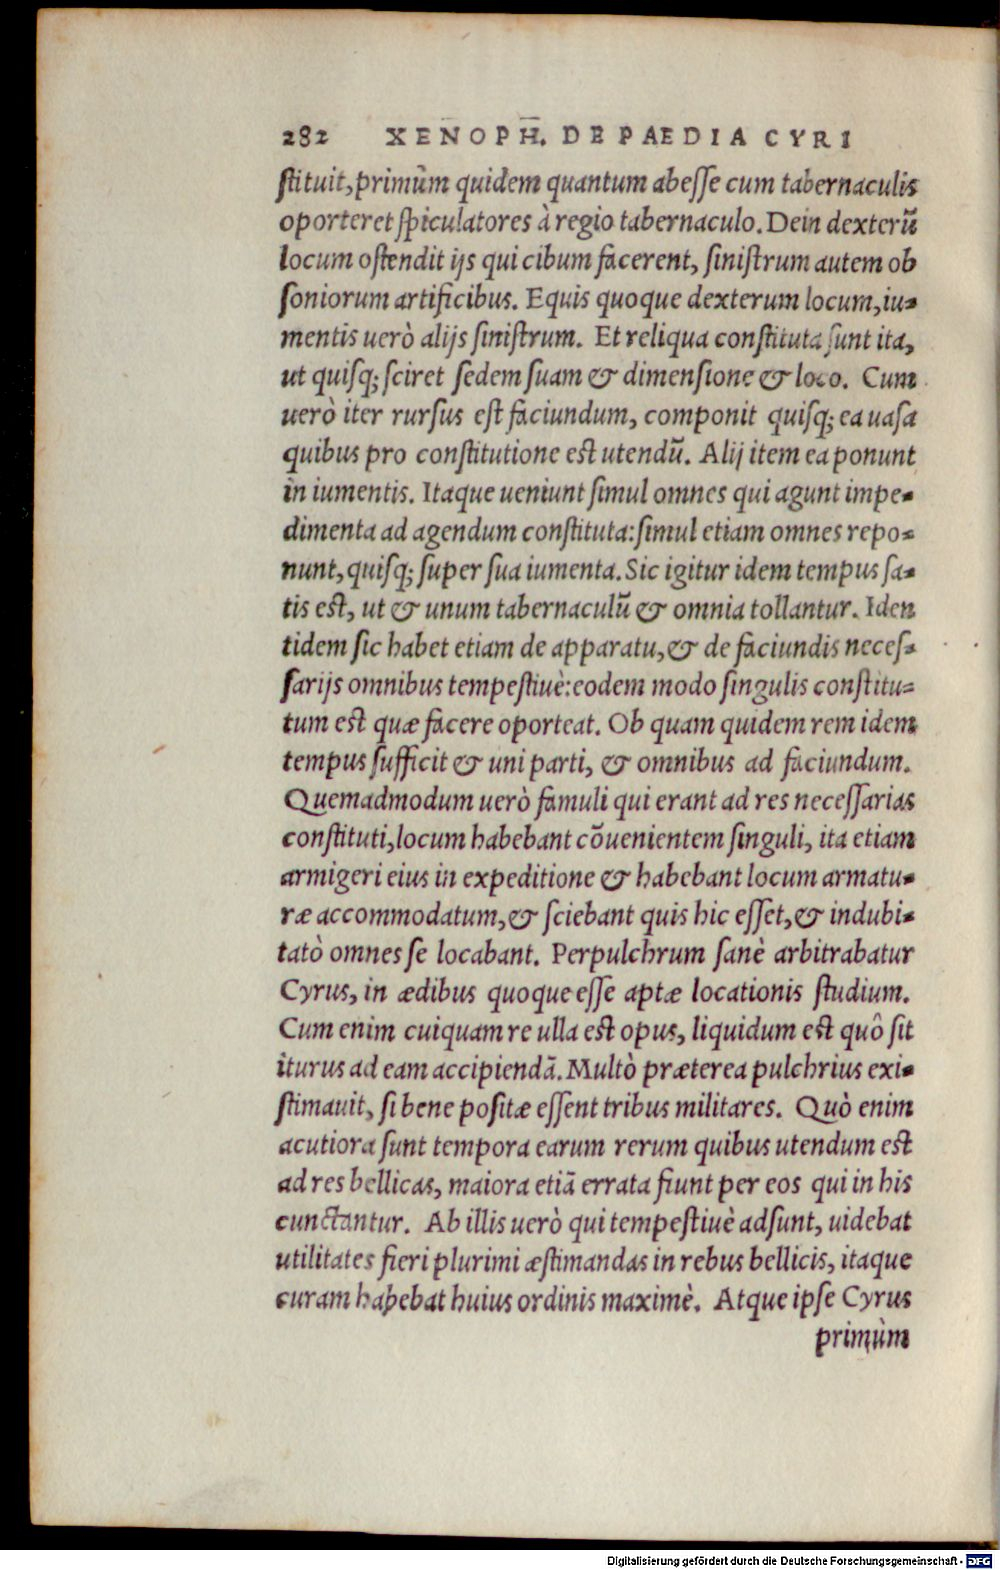 282 XENOPH. DE PAEDIA CYRI
ſtituit, primùm quidem quantum abeſſe cum tabernaculis
oporteret ſpiculatores à regio tabernaculo. Dein dexterū
locum oſtendit ijs qui cibum facerent, ſiniſtrum autem ob
ſoniorum artificibus. Equis quoque dexterum locum, iu-
mentis uerò alijs ſiniſtrum. Et reliqua conſtituta ſunt ita,
ut quiſq; ſciret ſedem ſuam & dimenſione & loco. Cum
uerò iter rurſus eſt faciundum, componit quiſq; ea uaſa
quibus pro conſtitutione eſt utendū. Alij item ea ponunt
in iumentis. Itaque ueniunt ſimul omnes qui agunt impe-
dimenta ad agendum conſtituta: ſimul etiam omnes repo-
nunt, quiſq; ſuper ſua iumenta. Sic igitur idem tempus ſa-
tis eſt, ut & unum tabernaculū & omnia tollantur. Iden
tidem ſic habet etiam de apparatu, & de faciundis neceſ-
ſarijs omnibus tempeſtiuè: eodem modo ſingulis conſtitu-
tum eſt quæ facere oporteat. Ob quam quidem rem idem
tempus ſufficit & uni parti, & omnibus ad faciundum.
Quemadmodum uerò famuli qui erant ad res neceſſarias
conſtituti, locum habebant cōuenientem ſinguli, ita etiam
armigeri eius in expeditione & habebant locum armatu-
ræ accommodatum, & ſciebant quis hic eſſet, & indubi-
tatò omnes ſe locabant. Perpulchrum ſanè arbitrabatur
Cyrus, in ædibus quoque eſſe aptæ locationis ſtudium.
Cum enim cuiquam re ulla eſt opus, liquidum eſt quô ſit
iturus ad eam accipiendā. Multò præterea pulchrius exi-
ſtimauit, ſi bene poſitæ eſſent tribus militares. Quò enim
acutiora ſunt tempora earum rerum quibus utendum eſt
ad res bellicas, maiora etiā errata fiunt per eos qui in his
cunctantur. Ab illis uerò qui tempeſtiuè adſunt, uidebat
utilitates fieri plurimi æſtimandas in rebus bellicis, itaque
curam habebat huius ordinis maximè. Atque ipſe Cyrus
primùm
Digitalisierung gefördert durch die Deutsche Forschungsgemeinschaft - DFG